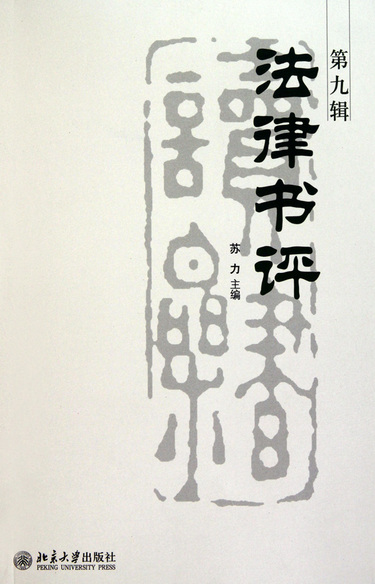 第九辑
法律书评
苏力 主编
北京大学出版社
PEKING UNIVERSITY PRESS